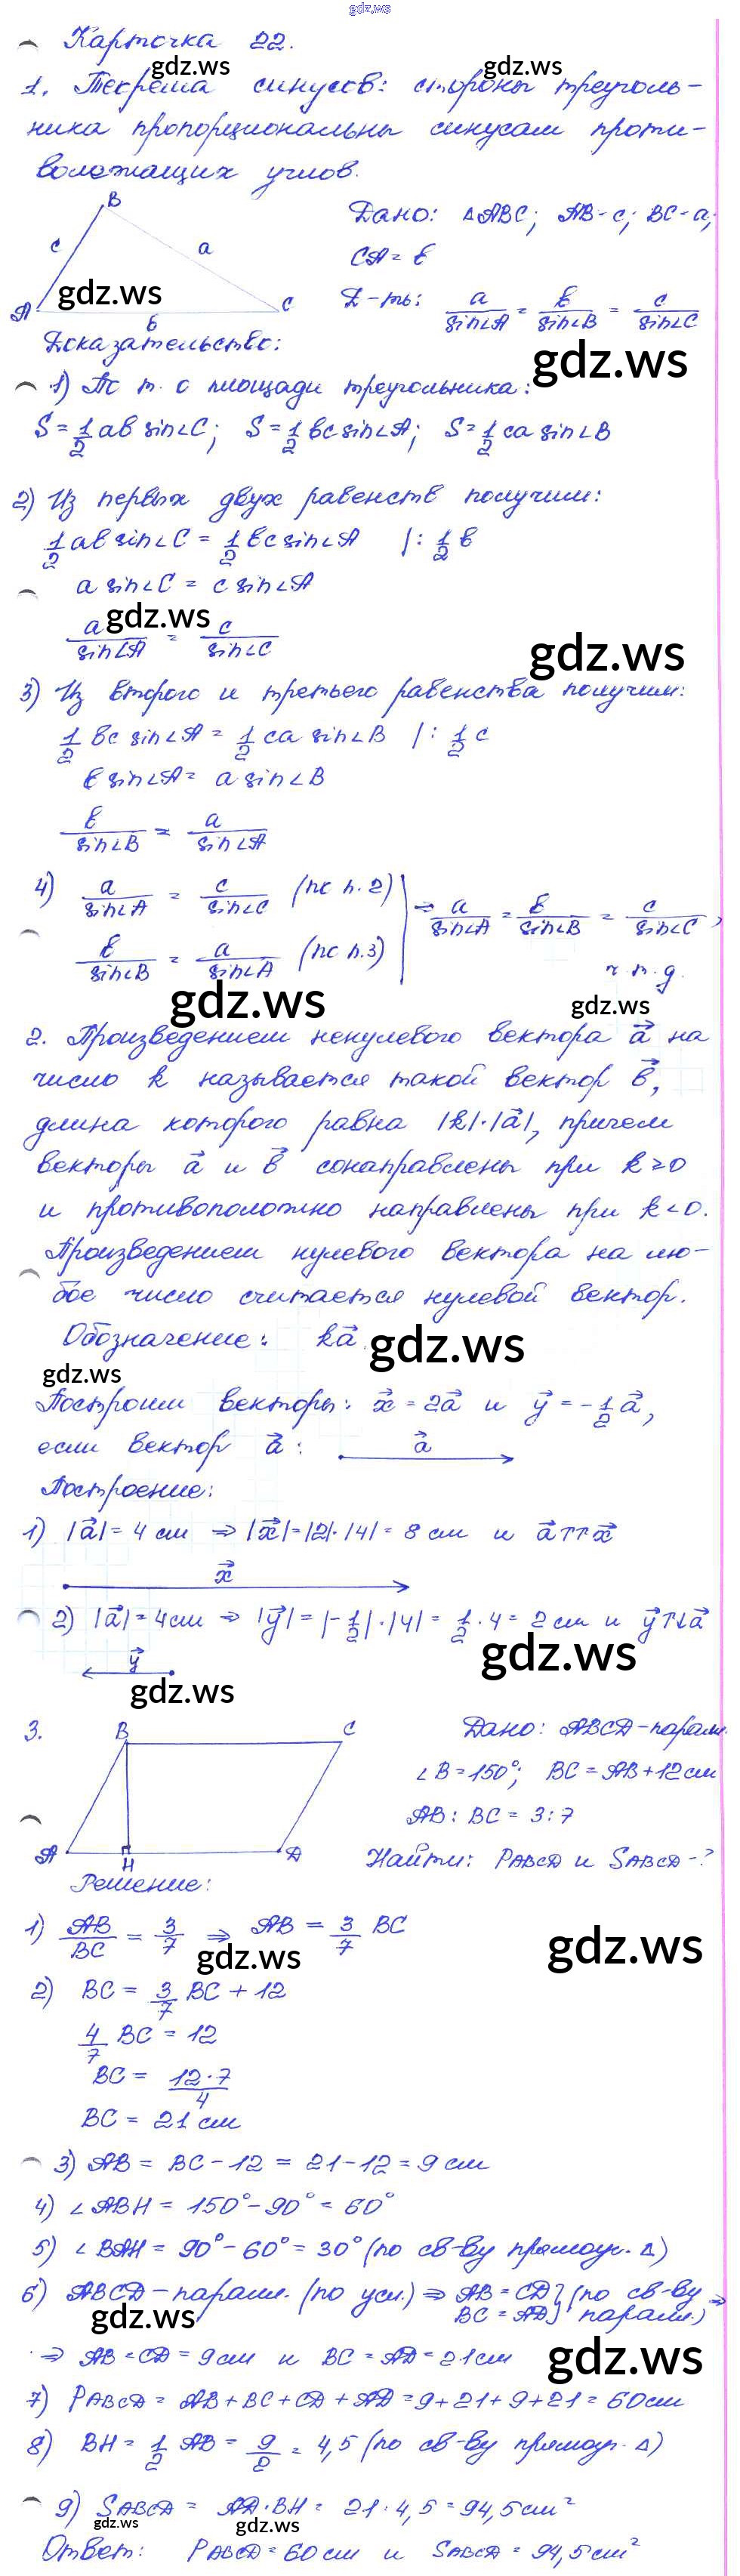 gdz.ws
Карточка 22.
gdz.ws gdz.ws
1. Теорема синусов: стороны треуголь-
ника пропорциональны синусам проти-
волежащих углов.
B
Дано: △ABC; AB-c; BC-a;
c a
CA = b
gdz.ws
A C
b
Д-ть: a/sin∠A = b/sin∠B = c/sin∠C
Доказательство:
gdz.ws
1) По т. о площади треугольника:
S = 1/2 ab sin∠C; S = 1/2 bc sin∠A; S = 1/2 ca sin∠B
2) Из первых двух равенств получим:
1/2 ab sin∠C = 1/2 bc sin∠A | : 1/2 b
a sin∠C = c sin∠A
gdz.ws
a/sin∠A = c/sin∠C
gdz.ws
3) Из второго и третьего равенства получим:
1/2 bc sin∠A = 1/2 ca sin∠B | : 1/2 c
b sin∠A = a sin∠B
b/sin∠B = a/sin∠A
4) a/sin∠A = c/sin∠C (по п.2)
b/sin∠B = a/sin∠A (по п.3)
⇒ a/sin∠A = b/sin∠B = c/sin∠C,
ч.т.д.
gdz.ws gdz.ws
2. Произведением ненулевого вектора a⃗ на
число k называется такой вектор b⃗,
длина которого равна |k|·|a⃗|, причем
векторы a⃗ и b⃗ сонаправлены при k≥0
и противоположно направлены при k<0.
Произведением нулевого вектора на лю-
бое число считается нулевой вектор.
Обозначение: ka⃗
gdz.ws
gdz.ws
Построим векторы: x⃗ = 2a⃗ и y⃗ = -1/2 a⃗,
если вектор a⃗: a⃗
Построение:
1) |a⃗| = 4 см ⇒ |x⃗| = |2|·|4| = 8 см и a⃗↑↑x⃗
x⃗
2) |a⃗| = 4 см ⇒ |y⃗| = |-1/2|·|4| = 1/2 · 4 = 2 см и y⃗↑↓a⃗
y⃗
gdz.ws
gdz.ws
3. B C
Дано: ABCD-парал.
∠B = 150°; BC = AB + 12 см
AB : BC = 3 : 7
A H D
Найти: PABCD и SABCD-?
Решение:
1) AB/BC = 3/7 ⇒ AB = 3/7 BC
gdz.ws gdz.ws
2) BC = 3/7 BC + 12
4/7 BC = 12
BC = 12·7/4
BC = 21 см
3) AB = BC - 12 = 21 - 12 = 9 см
4) ∠ABH = 150° - 90° = 60°
5) ∠BAH = 90° - 60° = 30° (по св-ву прямоуг. △)
6) ABCD - парал. (по усл.) ⇒ AB = CD
BC = AD} (по св-ву парал.) ⇒
gdz.ws
⇒ AB = CD = 9 см и BC = AD = 21 см
gdz.ws
7) PABCD = AB + BC + CD + AD = 9 + 21 + 9 + 21 = 60 см
8) BH = 1/2 AB = 9/2 = 4,5 (по св-ву прямоуг. △)
9) SABCD = AD·BH = 21·4,5 = 94,5 см²
gdz.ws gdz.ws
Ответ: PABCD = 60 см и SABCD = 94,5 см²